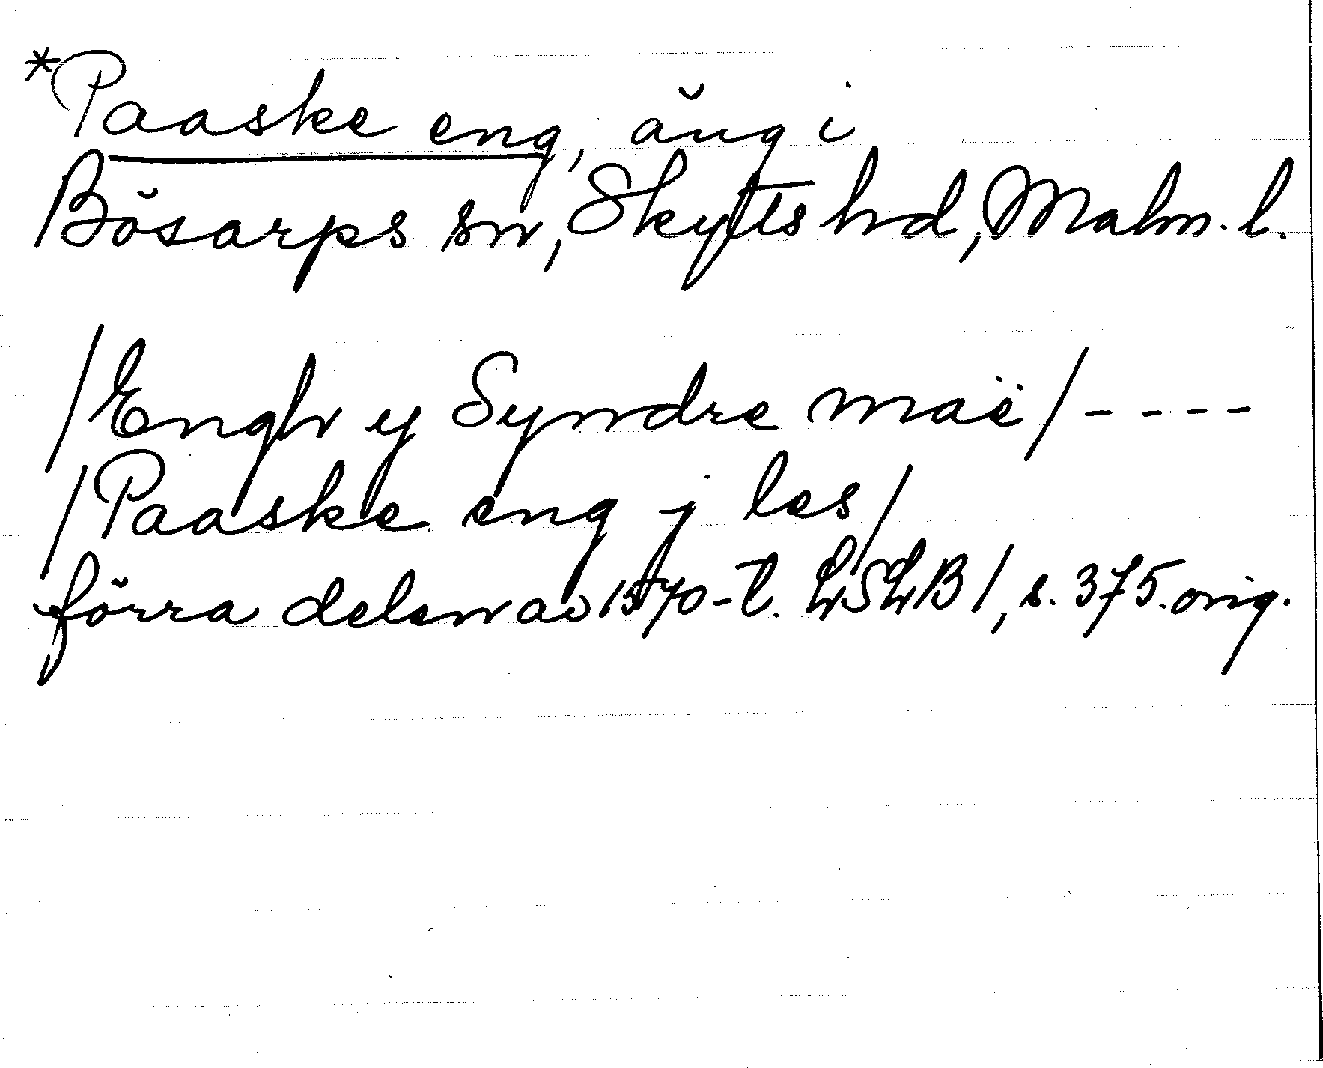 *Paaske eng, äng i
Bösarps sn, Skytts hd, Malm. l.
/Engh y Syndre maë/ ----
/Paaske eng j les/
förra delen av 1570-t. LSLB I, s. 375. orig.